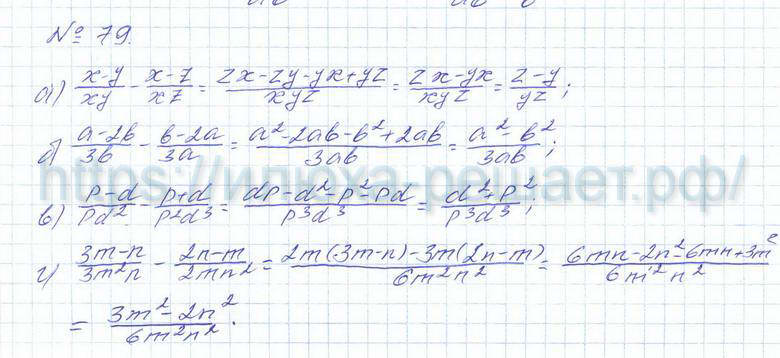 № 79.
а) (x-y)/(xy) - (x-z)/(xz) = (zx-zy-yx+yz)/(xyz) = (zx-yx)/(xyz) = (z-y)/(yz);
б) (a-2b)/(3b) - (b-2a)/(3a) = (a²-2ab-b²+2ab)/(3ab) = (a²-b²)/(3ab);
https://илюха-решает.рф/
в) (p-d)/(pd²) - (p+d)/(p²d³) = (dp-d²-p²-pd)/(p³d³) = (d²+p²)/(p³d³);
г) (3m-n)/(3m²n) - (2n-m)/(2mn²) = (2m(3m-n)-3m(2n-m))/(6m²n²) = (6mn-2n²-6mn+3m²)/(6m²n²)
= (3m²-2n²)/(6m²n²).